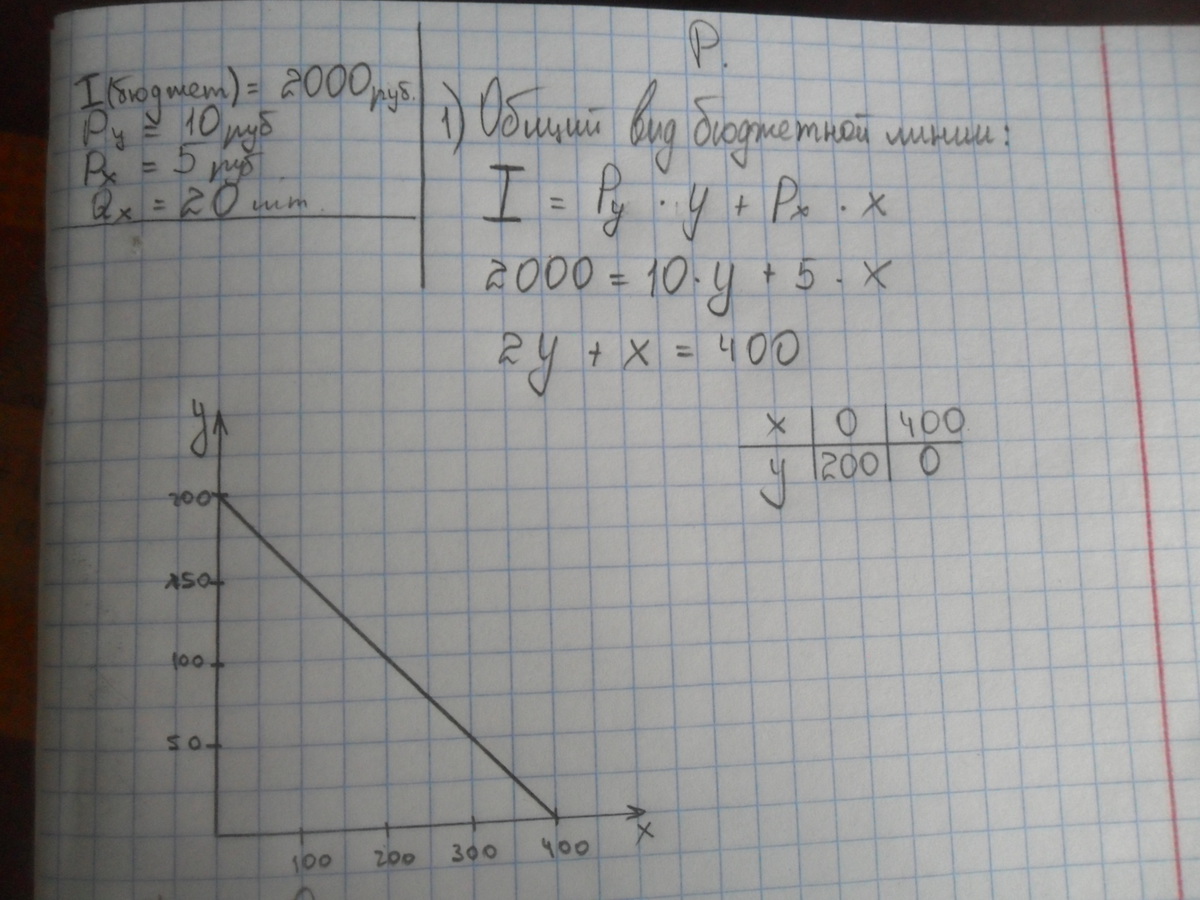 I (бюджет) = 2000 руб.
Py = 10 руб
Px = 5 руб
Qx = 20 шт.
Р.
1) Общий вид бюджетной линии:
I = Py · y + Px · x
2000 = 10 · y + 5 · x
2y + x = 400
x 0 400
y 200 0
y
200
150
100
50
100 200 300 400 x